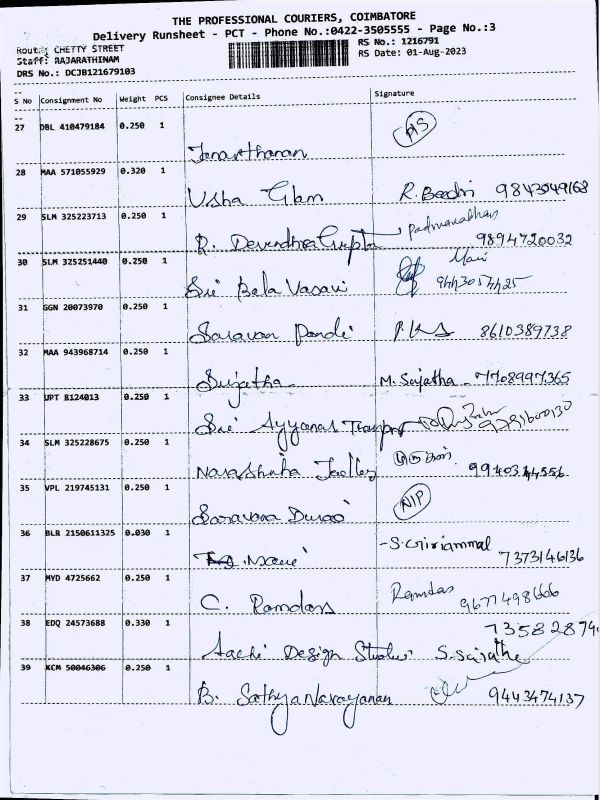 THE PROFESSIONAL COURIERS, COIMBATORE
Delivery Runsheet - PCT - Phone No.:0422-3505555 - Page No.:3
Route: CHETTY STREET
Staff: RAJARATHINAM
DRS No.: DCJB121679103
RS No.: 1216791
RS Date: 01-Aug-2023
S No Consignment No Weight PCS Consignee Details Signature
27 DBL 410479184 0.250 1
Janarthanan
28 MAA 571055929 0.320 1
Usha Glam R. 9843049168
29 SLM 325223713 0.250 1
R. Devendhra Gupta Padmanabhan 9894720032
30 SLM 325251440 0.250 1
Sri Bala Vasavi Mani
31 GGN 20073970 0.250 1
Saravan Pandi 8610389738
32 MAA 943968714 0.250 1
Sujatha M. Sujatha 7708997365
33 UPT 8124013 0.250 1
Sri Ayyanar Transport
34 SLM 325228675 0.250 1
35 VPL 219745131 0.250 1
NIP
36 BLR 2150611325 0.030 1
- S. Giriammal 7373146136
37 MYD 4725662 0.250 1
C. Ramdass Ramdas 9677498666
38 EDQ 24573688 0.330 1
Aachi Design Studio S. Sujatha
39 KCM 50046306 0.250 1
B. SathyaNarayanan 9443474137